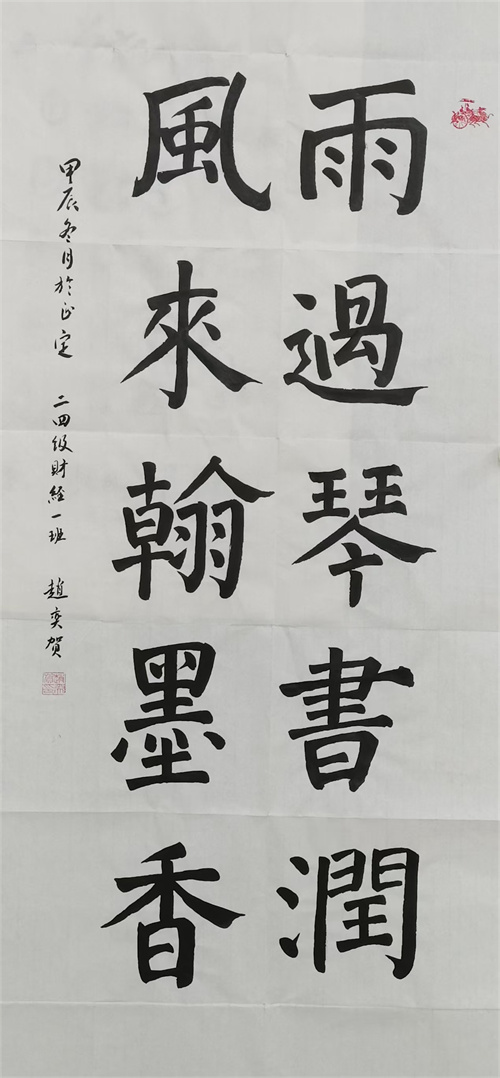 雨過琴書潤
風來翰墨香
甲辰冬月於正定 二四级财經一班 趙奕贺